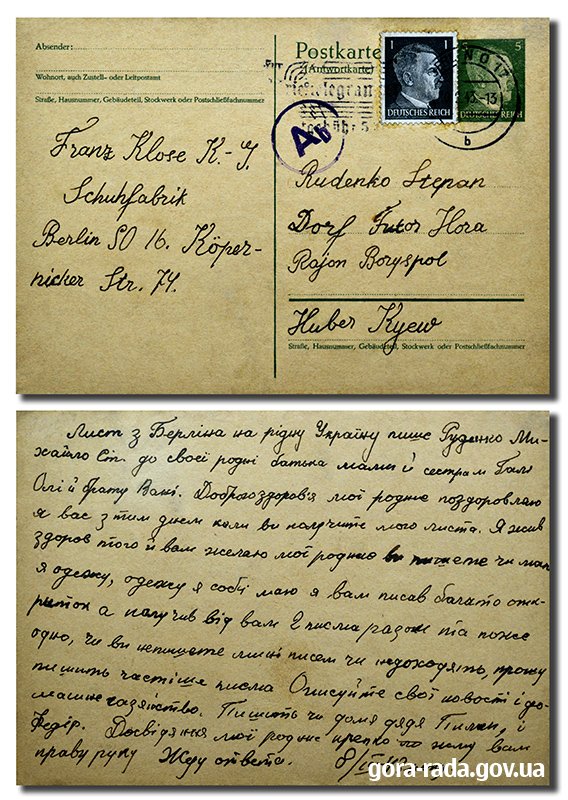 Absender:
Wohnort, auch Zustell- oder Leitpostamt
Straße, Hausnummer, Gebäudeteil, Stockwerk oder Postschließfachnummer
Franz Klose K.-G.
Schuhfabrik
Berlin SO 16. Köper-
nicker Str. 74.
Postkarte
(Antwortkarte)
1 1
DEUTSCHES REICH
5
DEUTSCHES REICH
NO 17
b
Ab
Rudenko Stepan
Dorf Futor Hora
Rajon Boryspol
Huber Kyew
Straße, Hausnummer, Gebäudeteil, Stockwerk oder Postschließfachnummer
Лист з Берліна на рідну Україну пише Руденко Ми-
хайло Сіп. до своєї родні батька мами й сестрам Галі
Олі й брату Вані. Доброго здоров'я мої родние поздоровляю
я вас з тим днем коли ви получите мого листа. Я жив
здоров того й вам желаю мої родние ви пишете чи маю
я одежу, одежу я собі маю я вам писав багато отк-
риток а получив від вам 2 письма разом та поже
одно, чи ви непишете мині писем чи недоходять, прошу
пишить частіше письма Описуйте свої новості і до-
машнє газяйство. Пишіть чи дома дядя Тиман, і
Федір. Досвіданія мої родние крепко жму вам
праву руку Жду ответа. 8/IV
gora-rada.gov.ua